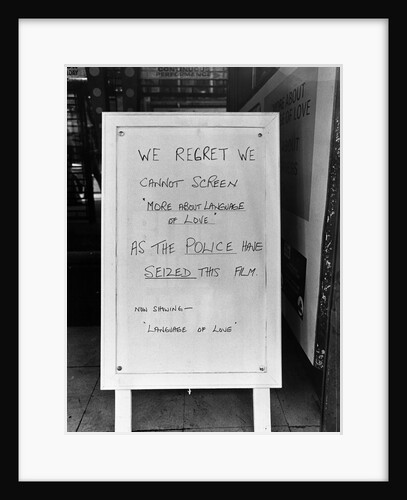 DAY
CONTINUOUS
PERFORMANCE
WE REGRET WE
CANNOT SCREEN
"MORE ABOUT LANGUAGE
OF LOVE"
AS THE POLICE HAVE
SEIZED THIS FILM.
NOW SHOWING—
"LANGUAGE OF LOVE"
ABOUT
OF LOVE